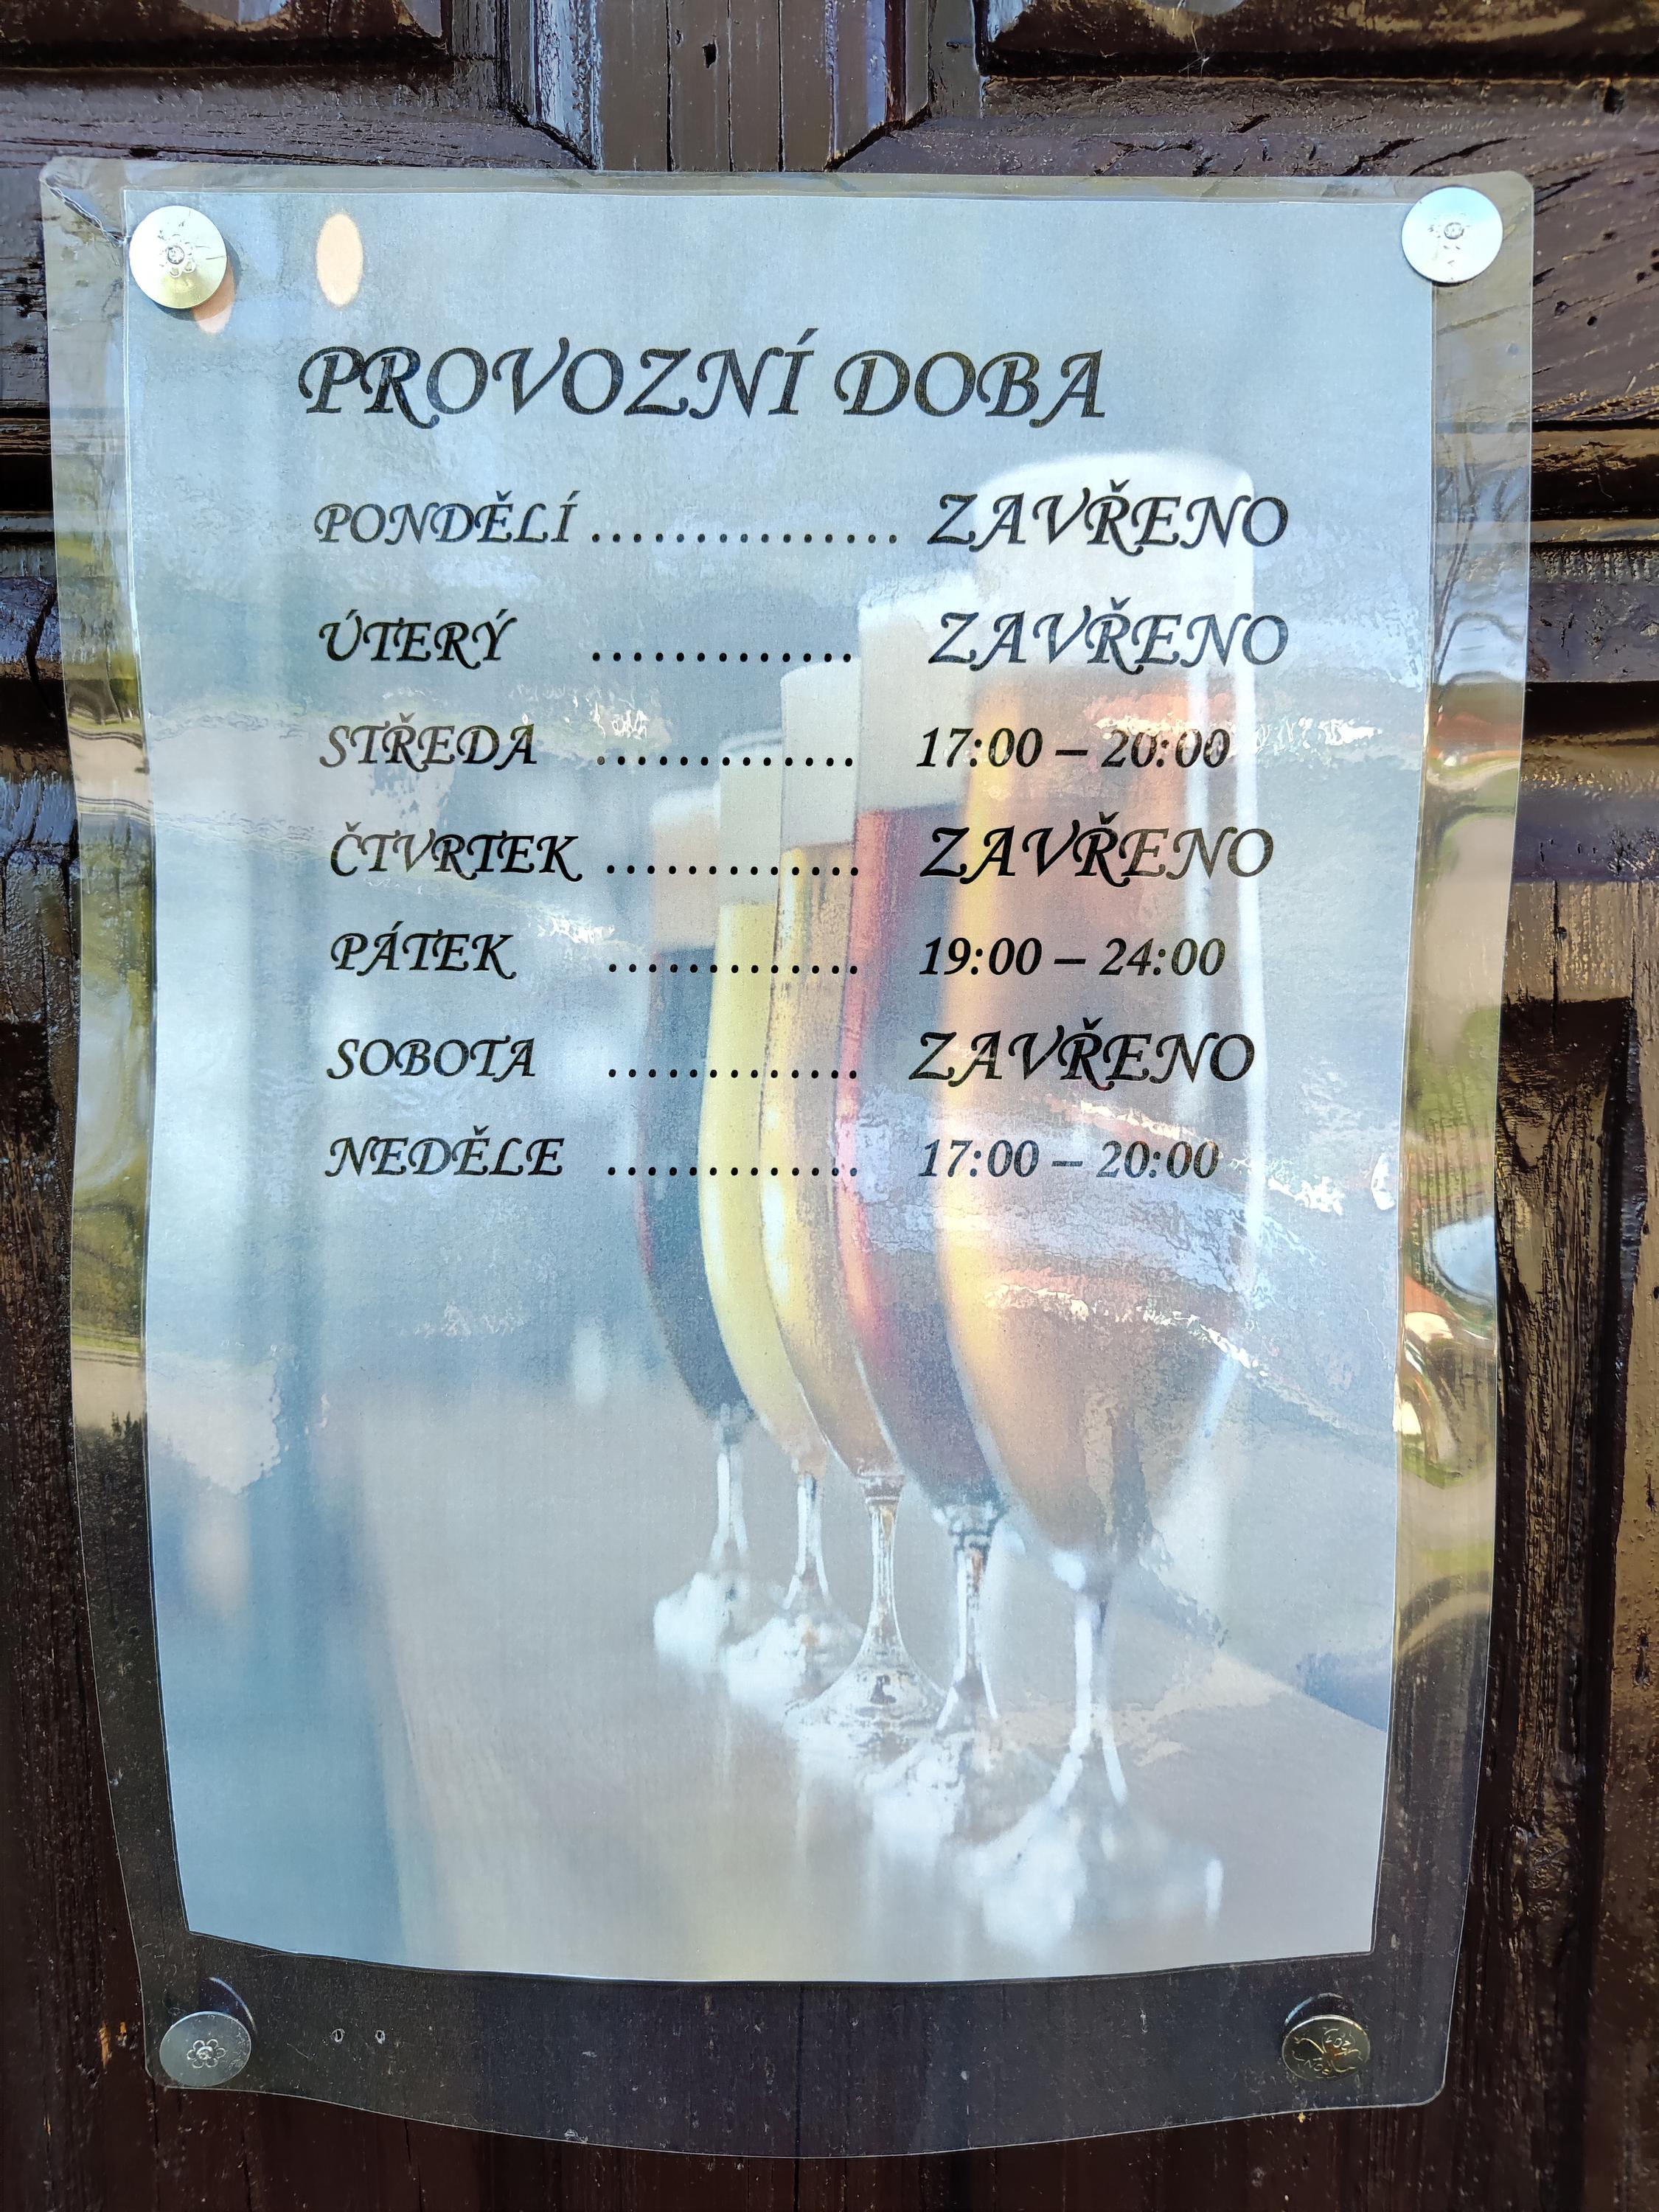 PROVOZNÍ DOBA
PONDĚLÍ ............... ZAVŘENO
ÚTERÝ ............. ZAVŘENO
STŘEDA ............. 17:00 – 20:00
ČTVRTEK ............. ZAVŘENO
PÁTEK ............. 19:00 – 24:00
SOBOTA ............. ZAVŘENO
NEDĚLE ............. 17:00 – 20:00